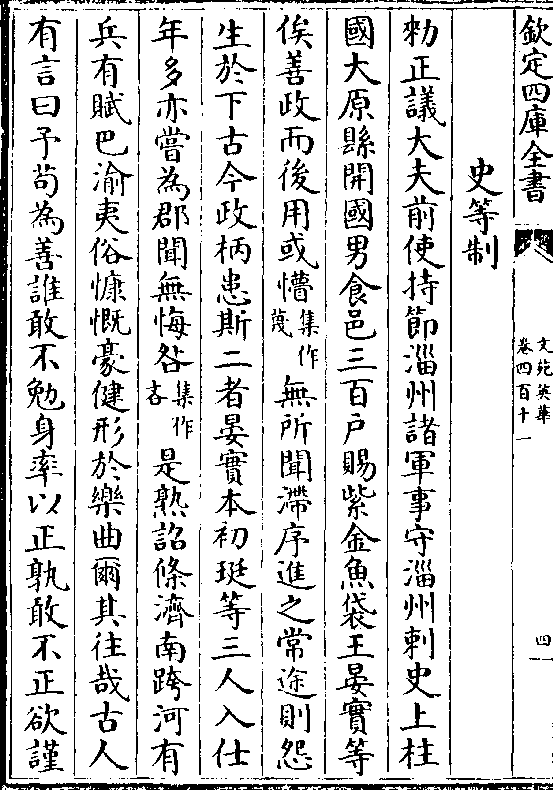 欽定四庫全書
文苑英華
卷四百十一
四
史等制
勅正議大夫前使持節淄州諸軍事守淄州刺史上柱
國大原縣開國男食邑三百户賜紫金魚袋王晏實等
俟善政而後用或懵集作蔑無所聞滯序進之常途則怨
生於下古今政柄患斯二者晏實本初珽等三人入仕
年多亦嘗為郡聞無悔咎集作吝是熟詔條濟南跨河有
兵有賦巴渝夷俗慷慨豪健形於樂曲爾其往哉古人
有言曰予茍為善誰敢不勉身率以正孰敢不正欲謹